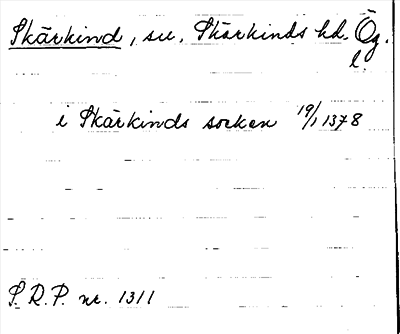 Skärkind, sn, Skärkinds hd. Ög.
l.
i Skärkinds socken 19/1 1378
S.R.P. nr. 1311